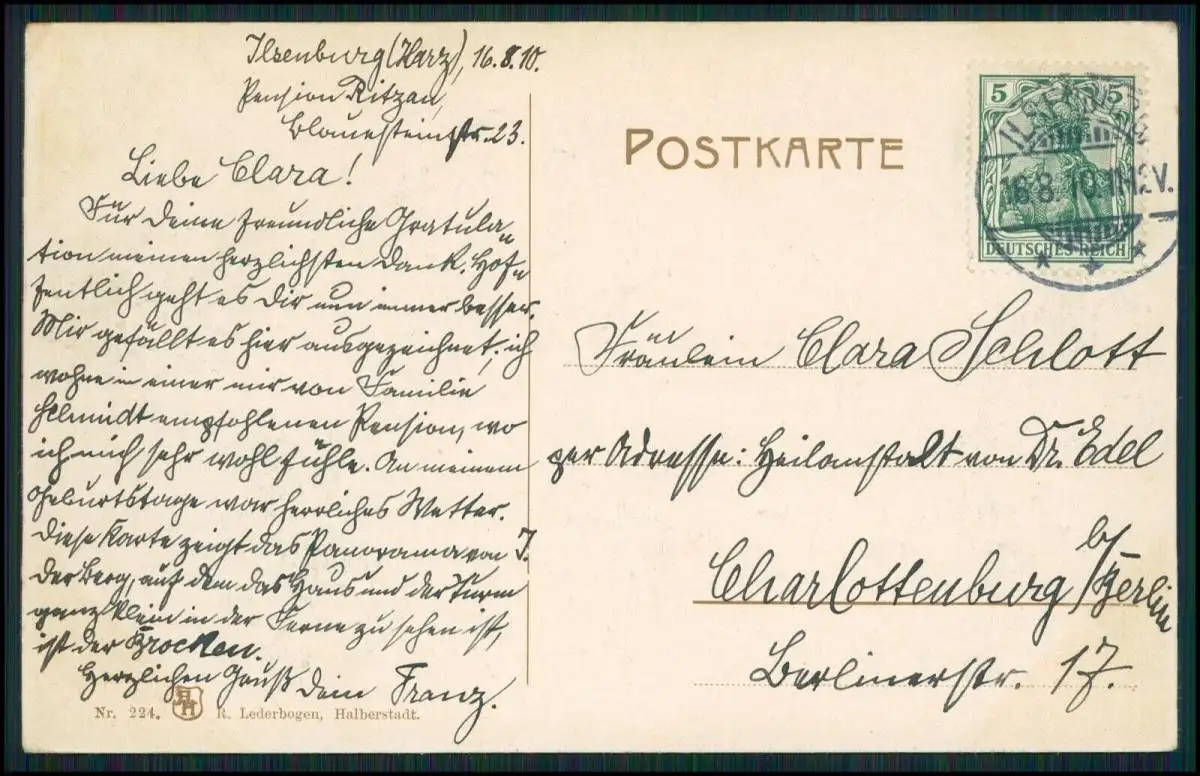 Ilsenburg (Harz), 16.8.10.
Pension Ritzau,
Blauesteinstr. 23.
Liebe Clara!
Für Deine freundliche Gratula-
tion meinen herzlichsten Dank. Hof-
fentlich geht es Dir nun immer besser.
Mir gefällt es hier ausgezeichnet; ich
wohne in einer mir von Familie
Schmidt empfohlenen Pension, wo
ich mich sehr wohl fühle. An meinem
Geburtstage war herrliches Wetter.
Diese Karte zeigt das Panorama von J.
der Berg, auf dem das Haus und der Turm
ganz klein in der Ferne zu sehen ist,
ist der Brocken.
Herzlichen Gruß Dein Franz.
Nr. 224. HH R. Lederbogen, Halberstadt.
POSTKARTE
5 5
DEUTSCHES REICH
ILSENBURG
16.8.10.11-12V.
Fräulein Clara Schlott
per Adresse: Heilanstalt von Dr. Edel
Charlottenburg b/Berlin
Berlinerstr. 17.